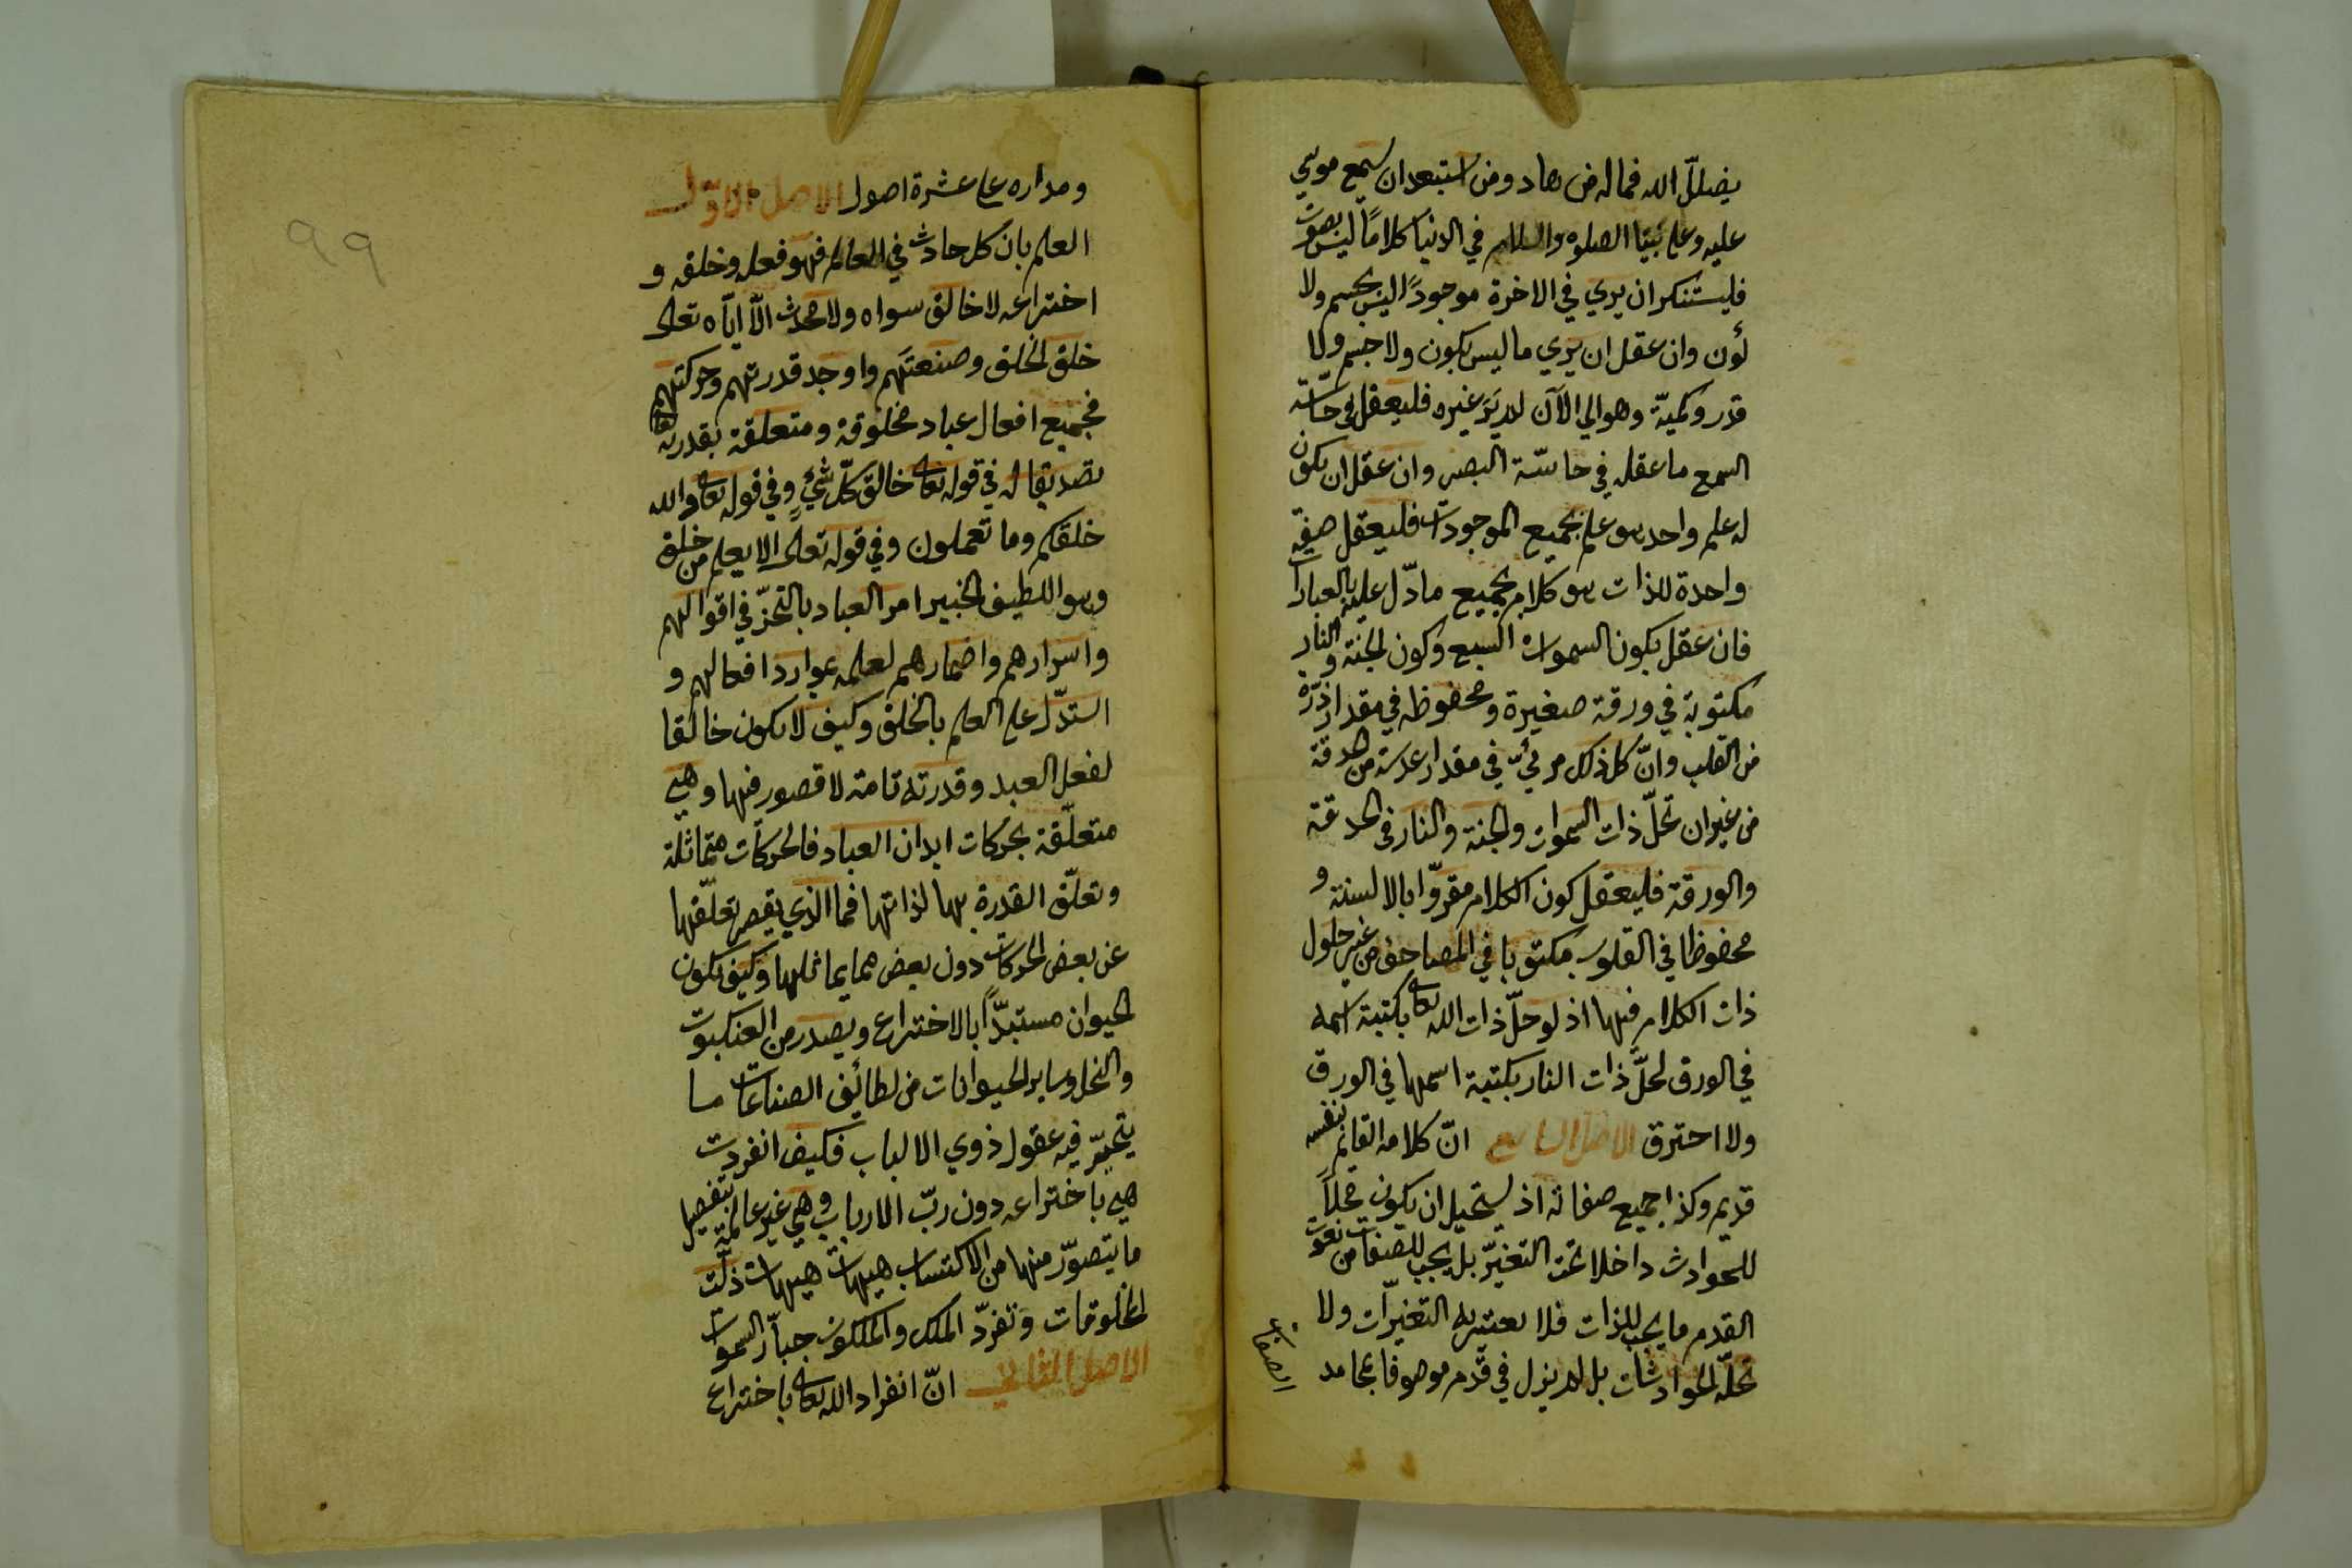 يضلل الله فماله من هاد ومن استبعد ان سمع موسي
عليه وعلي نبينا الصلوة والسلام في الدنيا كلاماً ليس بصوت
فليستنكر ان يري في الاخرة موجوداً ليس بجسم ولا
لون وان عقل ان يري ما ليس بكون ولا جسم ولا
قدر وكميّة وهو الي الآن لم يَرَ غيره فليعقل في حاسّة
السمع ما عقله في حاسّة البصر وان عقل ان يكون
له علم واحد هو علم بجميع الموجودات فليعقل صفة
واحدة للذات هو كلام بجميع ما دّل عليه بالعبارات
فان عقل بكون السموات السبع وكون الجنة والنار
مكتوبة في ورقة صغيرة ومحفوظه في مقدار ذرّة
من القلب وانّ كل ذلك مرئيّ في مقدار عدسة من الحدقة
من غير ان تحلّ ذات السموات والجنة والنار في الحدقة
والورقة فليعقل كون الكلام مقروّا بالالسنة و
محفوظا في القلوب مكتوبا في المصاحف من غير حلول
ذات الكلام فيها اذ لو حلّ ذات الله تعالى بكتبة اسمه
في الورق لحلّ ذات النار بكتبة اسمها في الورق
ولا احترق الاصل السابع انّ كلامه القائم بنفسه
قديم وكذا جميع صفاته اذ يستحيل ان يكون محلاً
للحوادث داخلا تحت التغيّر بل يجب للصفات من نعوت
القدم ما يجب للذات فلا تعتريه التغيّرات ولا
تحلّه الحوادثات بل لم يزل في قدم موصوفا بمحامد
الصفات
99
ومداره علي عشرة اصول الاصل الاوّل
العلم بان كل حادث في العالم فهو فعله وخلقه و
اختراعه لا خالق سواه ولا محدث الاّ ايّاه تعالى
خلق الخلق وصنعتَهم واوجد قدرتهم وحركتهم
فجميع افعال عباد مخلوقة ومتعلقة بقدرته
تصديقا له في قوله تعالى خالق كلّ شئٍ وفي قوله تعالى والله
خلقكم وما تعملون وفي قوله تعالى الا يعلم من خلق
وهو اللطيف الخبير امر العباد بالتحرّز في اقوالهم
واسرارهم واضمارهم لعلمه بموارد افعالهم و
استدّل علي العلم بالخلق وكيف لا يكون خالقا
لفعل العبد وقدرته تامة لا قصور فيها وهي
متعلّقة بحركات ابدان العباد فالحركات متماثلة
وتعلّق القدرة بها لذاتها فما الذي يقصر تعلّقها
عن بعض الحركات دون بعض مما يماثلها وكيف يكون
الحيوان مستبدّاً بالاختراع ويصدر من العنكبوت
والنحل وساير الحيوانات من لطائف الصناعات ما
يتحيّر فيه عقول ذوي الالباب فكيف انفردت
هي باختراعه دون ربّ الارباب وهي غير عالمة بتفصيل
ما يتصوّر منها من الاكتساب هيهات هيهات ذلّت
المخلوقات وتفرّد الملك والملكوت جبار السموات
الاصل الثاني انّ انفراد الله تعالى باختراع